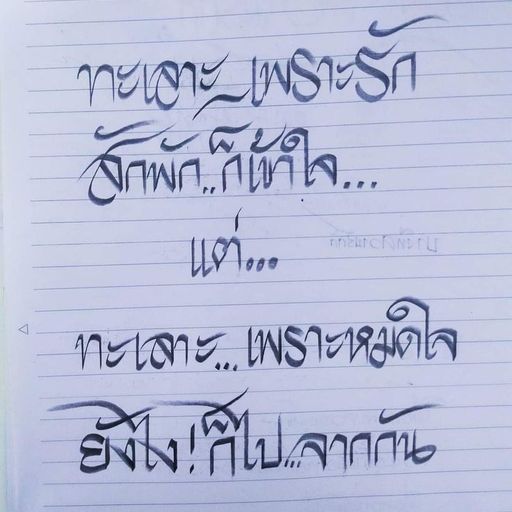 ทะเลาะ เพราะรัก
สักพัก..ก็เข้าใจ...
แต่...
ทะเลาะ...เพราะหมดใจ
ยังไง!ก็ไป...จากกัน